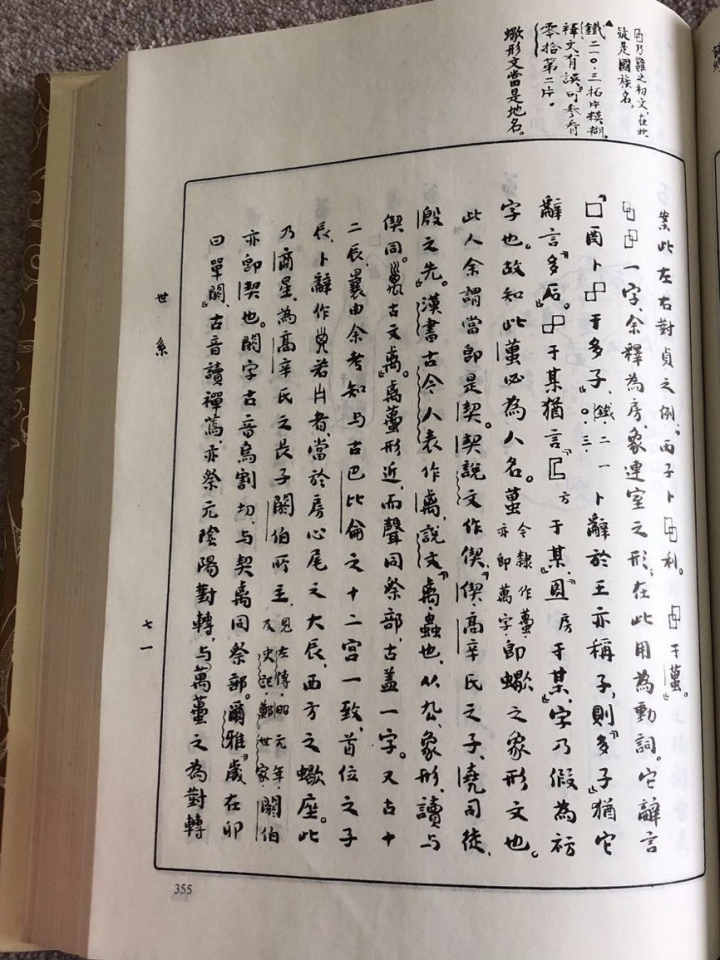 乃雍之初文,在此
疑是國族名。
鐵二一〇·三拓片模糊,
釋文有誤,可參看
零拾第二片。
蠍形文當是地名。
案此左右對貞之例,丙子卜 利。 于𧍙。
一字,余釋為房,象連室之形;在此用為動詞。它辭言
「囗酉卜 于多子」鐵二一〇·三。卜辭於王亦稱子,則「多子」猶它
辭言「多后」。 于某猶言「匚方于某」「 房于某」,字乃假為祊
字也。故知此𧍙必為人名。𧍙今隸作蠆,亦即萬字。即蠍之象形文也。
此人余謂當即是契。契說文作偰,「偰,高辛氏之子,堯司徒,
殷之先。」漢書古今人表作禼,說文「禼,蟲也,从厹,象形,讀與
偰同。 古文禼。」禼蠆形近,而聲同祭部,古蓋一字。又古十
二辰,曩由余考知與古巴比侖之十二宮一致,首位之子
辰,卜辭作 若 者,當於房心尾之大辰,西方之蠍座。此
乃商星,為高辛氏之長子閼伯所主,見左傳昭元年及史記鄭世家。閼伯
亦即契也。閼字古音烏割切,與契禼同祭部。爾雅「歲在卯
曰單閼」,古音讀襌焉,亦祭元陰陽對轉,與萬蠆之為對轉
世系
七一
355